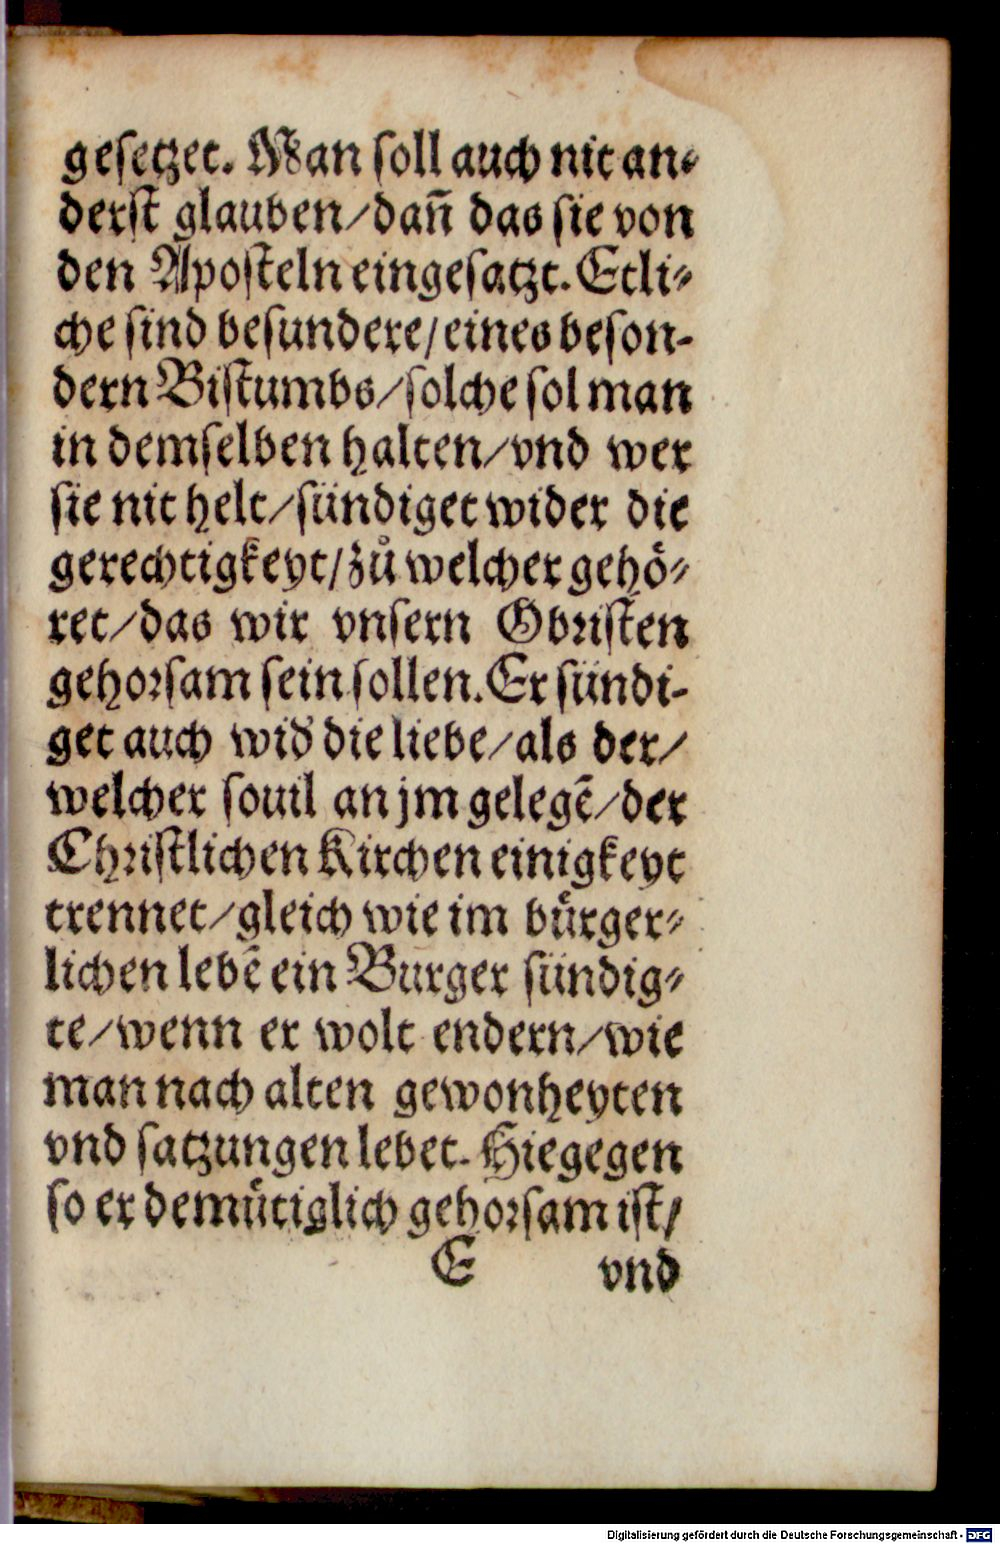 gesetzet. Man soll auch nit an⸗
derst glauben/dañ das sie von
den Aposteln eingesatzt. Etli⸗
che sind besundere/eines beson-
dern Bistumbs/solche sol man
in demselben halten/vnd wer
sie nit helt/sündiget wider die
gerechtigkeyt/zů welcher gehö⸗
ret/das wir vnsern Obristen
gehorsam sein sollen. Er sündi-
get auch wid̕ die liebe/als der/
welcher souil an jm gelegẽ/der
Christlichen Kirchen einigkeyt
trennet/gleich wie im bürger⸗
lichen lebẽ ein Burger sündig⸗
te/wenn er wolt endern/wie
man nach alten gewonheyten
vnd satzungen lebet. Hiegegen
so er demütiglich gehorsam ist/
E vnd
Digitalisierung gefördert durch die Deutsche Forschungsgemeinschaft - DFG